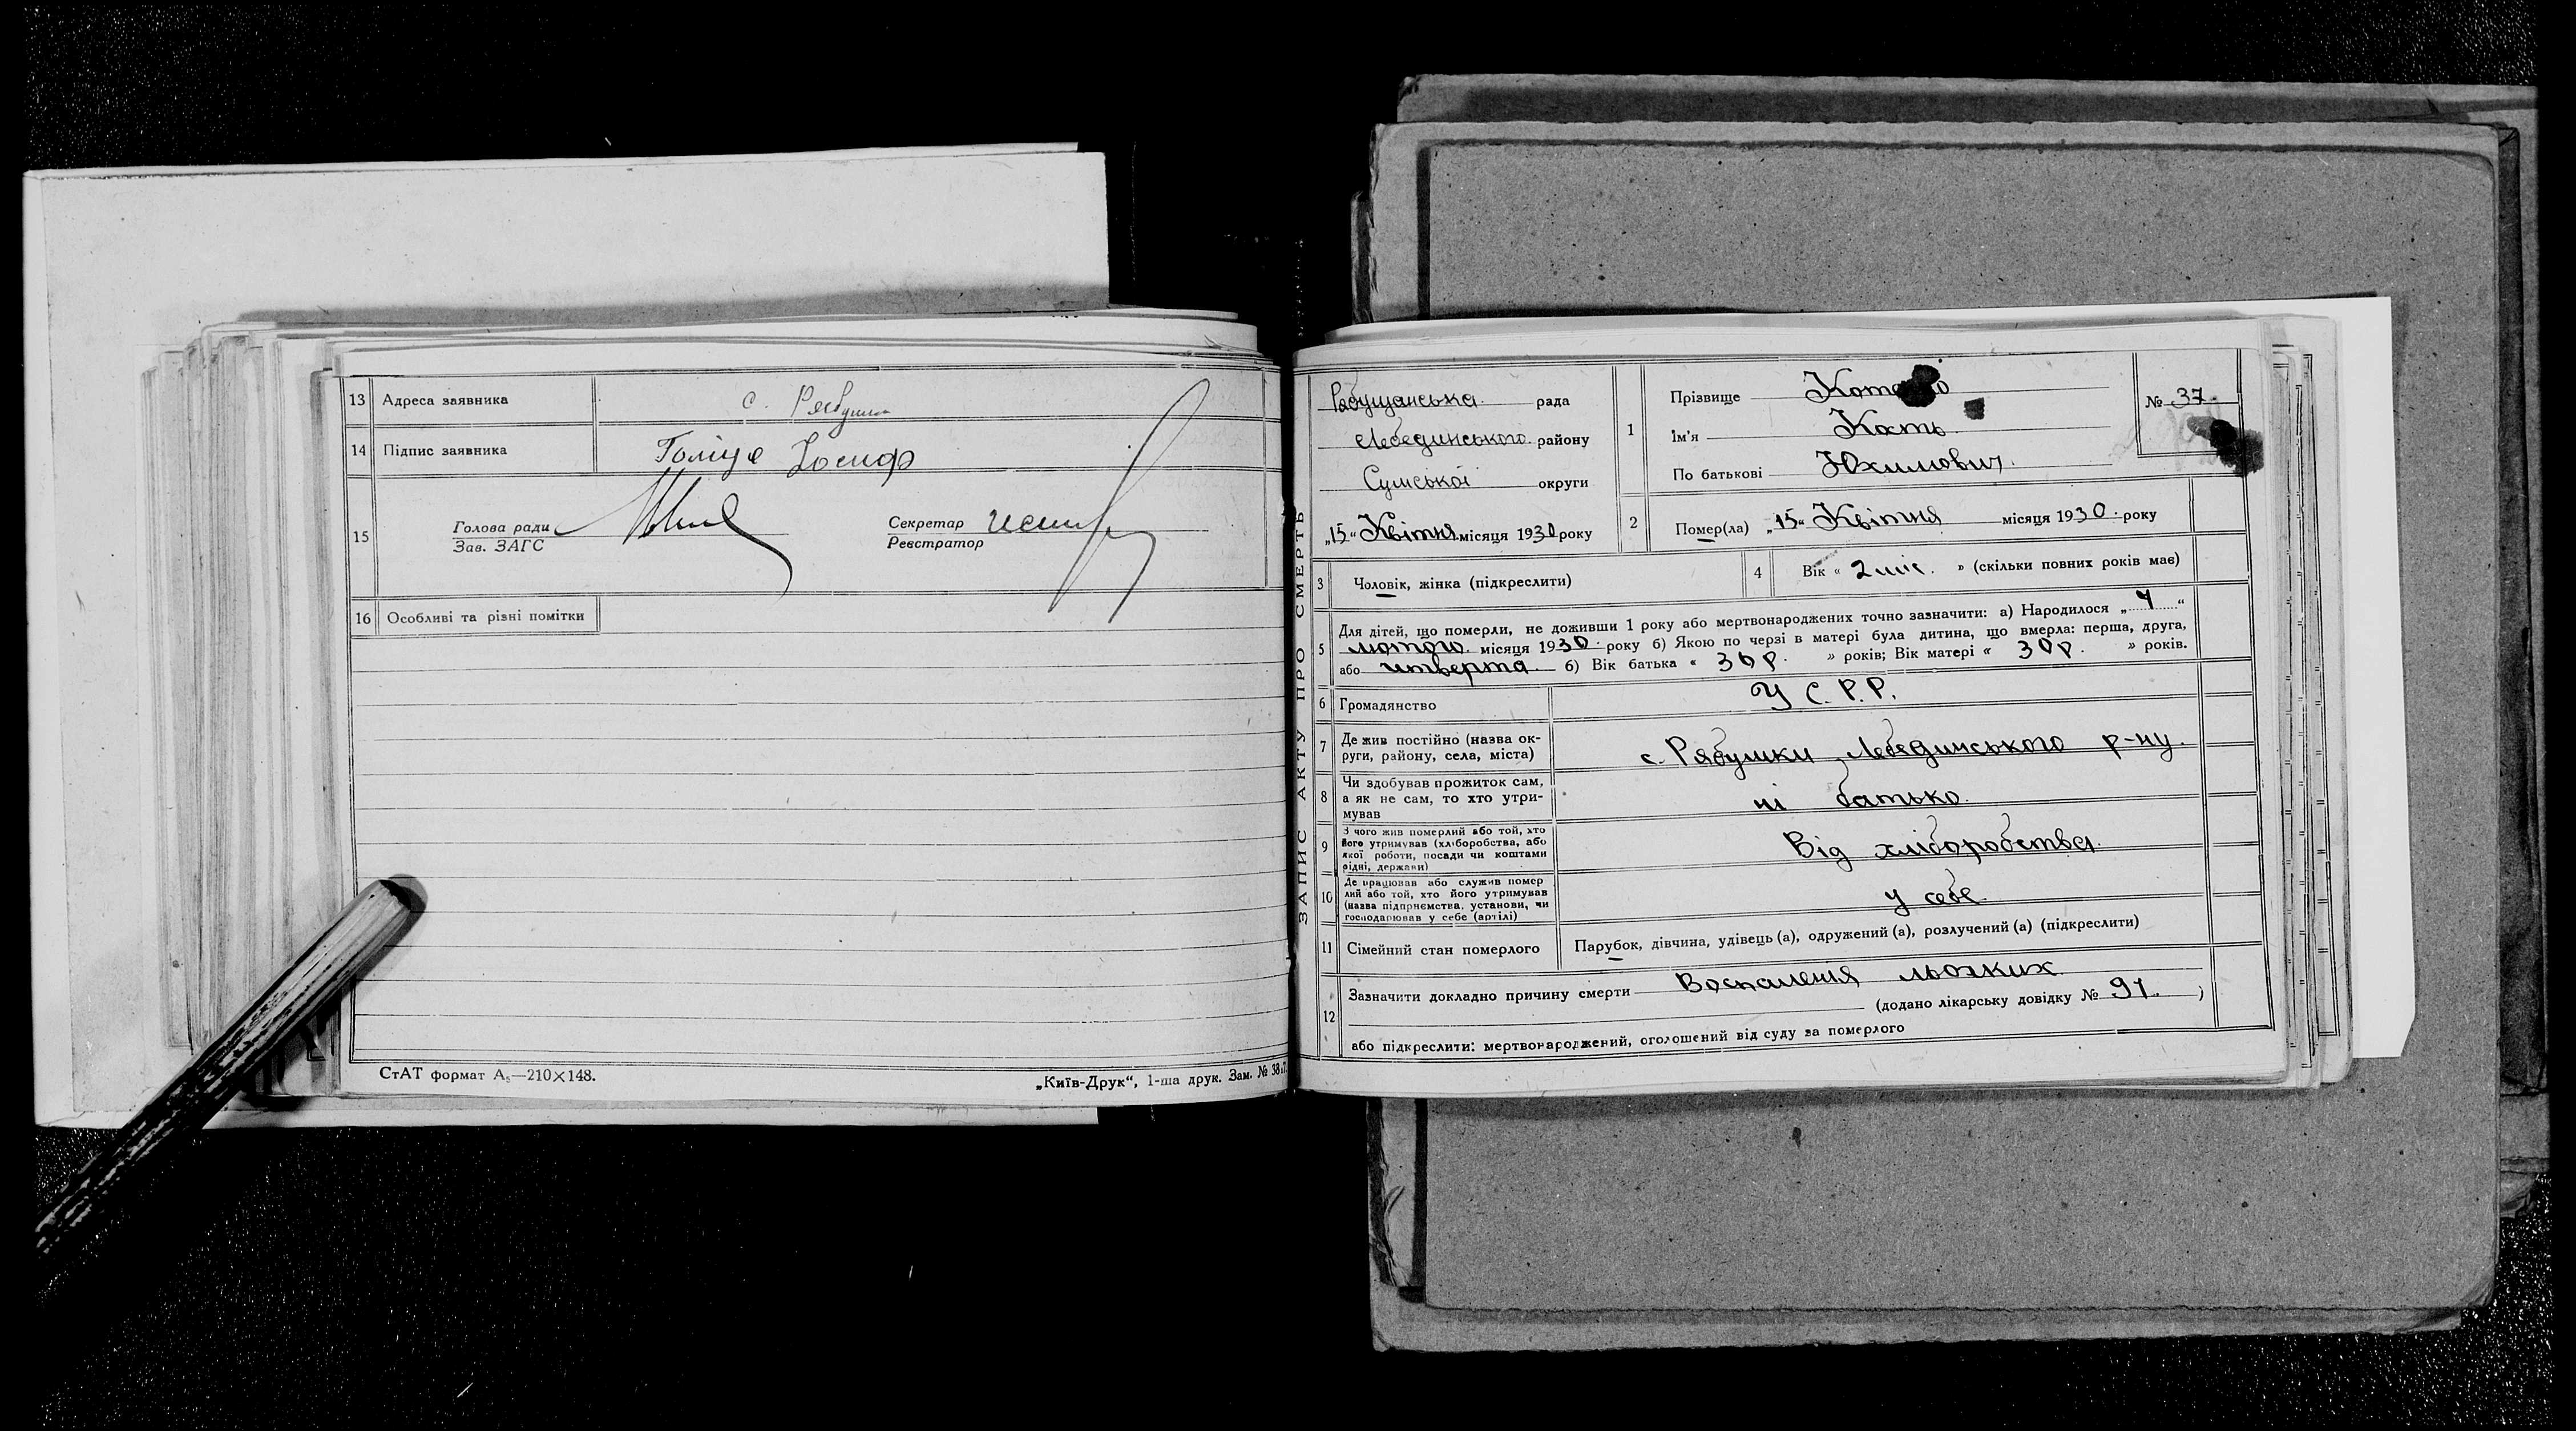 13 Адреса заявника с. Рябушки
14 Підпис заявника Голіце Йосиф
15 Голова ради
Зав. ЗАГС
Секретар
Реєстратор
16 Особливі та різні помітки
СтАТ формат А₅—210×148.
„Київ-Друк“, 1-ша друк. Зам. № 38
ЗАПИС АКТУ ПРО СМЕРТЬ
Рябущанська рада
Лебединського району
Сумської округи
„15“ Квітня місяця 1930 року
1 Прізвище
Ім'я Кость
По батькові Юхимович.
№ 37.
2 Помер(ла) „15“ Квітня місяця 1930. року
3 Чоловік, жінка (підкреслити)
4 Вік « 2 міс. » (скільки повних років має)
5 Для дітей, що померли, не доживши 1 року або мертвонароджених точно зазначити: а) Народилося „ 4 “
лютого місяця 1930. року б) Якою по черзі в матері була дитина, що вмерла: перша, друга,
або четверта б) Вік батька « 30 р. » років; Вік матері « 30 р. » років.
6 Громадянство У С. Р. Р.
7 Де жив постійно (назва округи, району, села, міста) с. Рябушки Лебединського р-ну.
8 Чи здобував прожиток сам,
а як не сам, то хто утримував
ні батько.
9 З чого жив померлий або той, хто
його утримував (хліборобства, або
якої роботи, посади чи коштами
рідні, держави)
Від хліборобства.
10 Де працював або служив помер
лий або той, хто його утримував
(назва підприємства, установи, чи
господарював у себе (артілі)
у себе.
11 Сімейний стан померлого Парубок, дівчина, удівець (а), одружений (а), розлучений (а) (підкреслити)
12 Зазначити докладно причину смерти Воспаленія льогких
(додано лікарську довідку № 91. )
або підкреслити: мертвонароджений, оголошений від суду за померлого